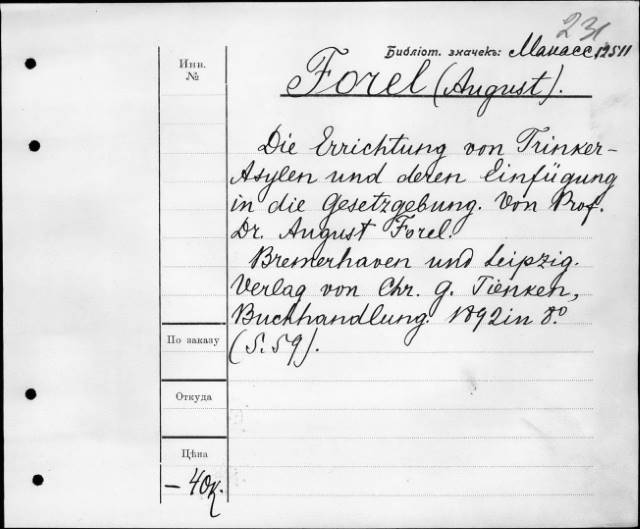 231
Библіот. значекъ: Манасс 12511
Инв.
№
Forel (August).
Die Errichtung von Trinker-
Asylen und deren Einfügung
in die Gesetzgebung. Von Prof.
Dr. August Forel.
Bremerhaven und Leipzig.
Verlag von Chr. G. Tienken,
Buchhandlung. 1892 in 8.º
(S. 59).
По заказу
Откуда
Цѣна
— 40к.